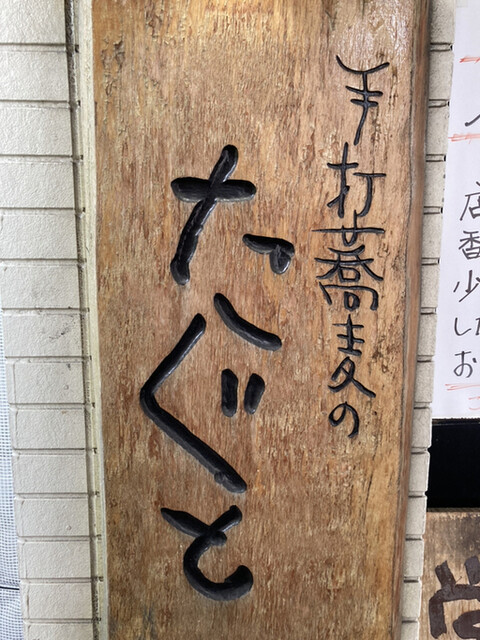 手打蕎麦の
たぐと
店
番
少
した
お